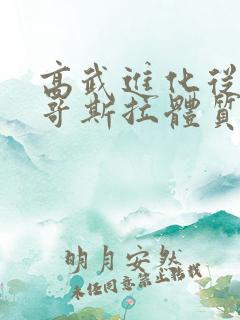 高武進化從
哥斯拉體質
明月安然
未经同意禁止转载